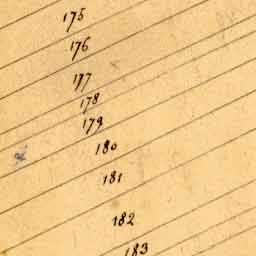 175
176
177
178
179
180
181
182
183